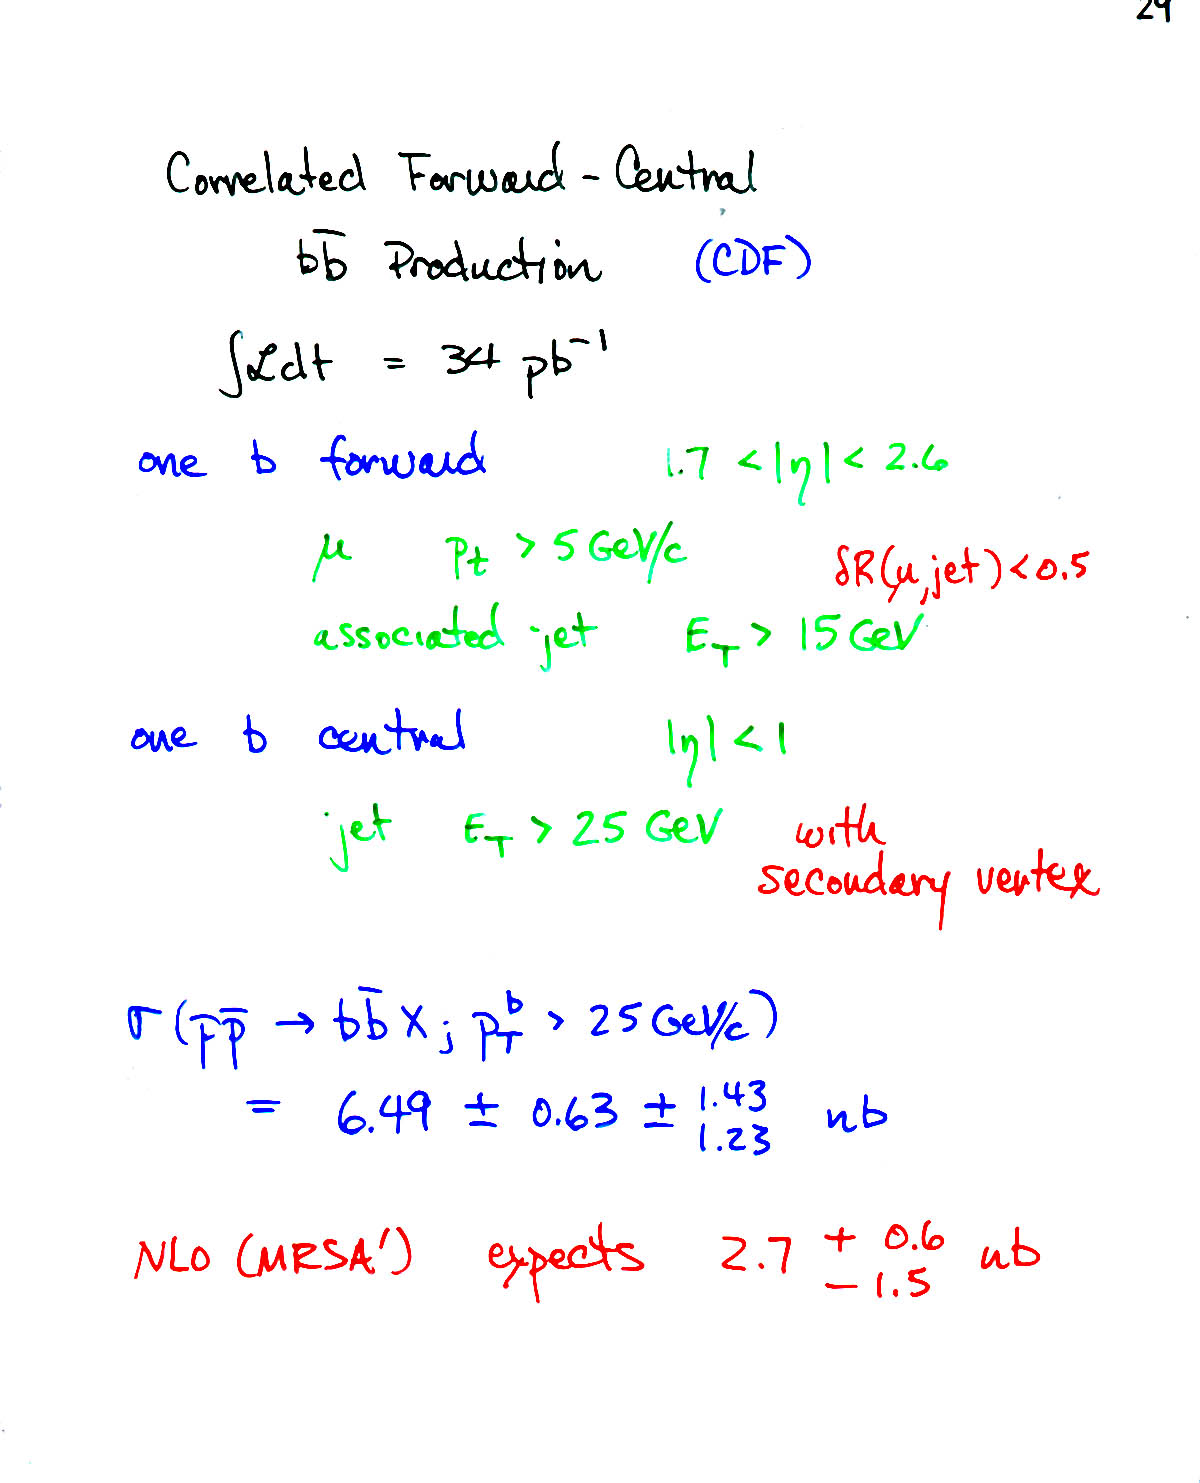 29
Correlated Forward - Central
bb̄ Production (CDF)
∫ℒdt = 34 pb⁻¹
one b forward 1.7 < |η| < 2.6
μ Pt > 5 GeV/c δR(μ,jet) < 0.5
associated jet E_T > 15 GeV
one b central |η| < 1
jet E_T > 25 GeV with
secondary vertex
σ(pp̄ → bb̄X; p_T^b > 25 GeV/c)
= 6.49 ± 0.63 ± 1.43 nb
1.23
NLO (MRSA') expects 2.7 + 0.6 nb
− 1.5